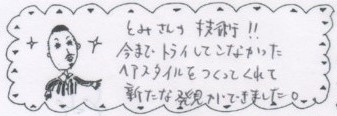 とみさんの技術!!
今までトライしてこなかった
ヘアスタイルをつくってくれて
新たな発見ができました。